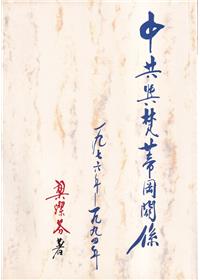 中共與梵蒂岡關係
一九七六年—一九九四年
梁潔芬 著